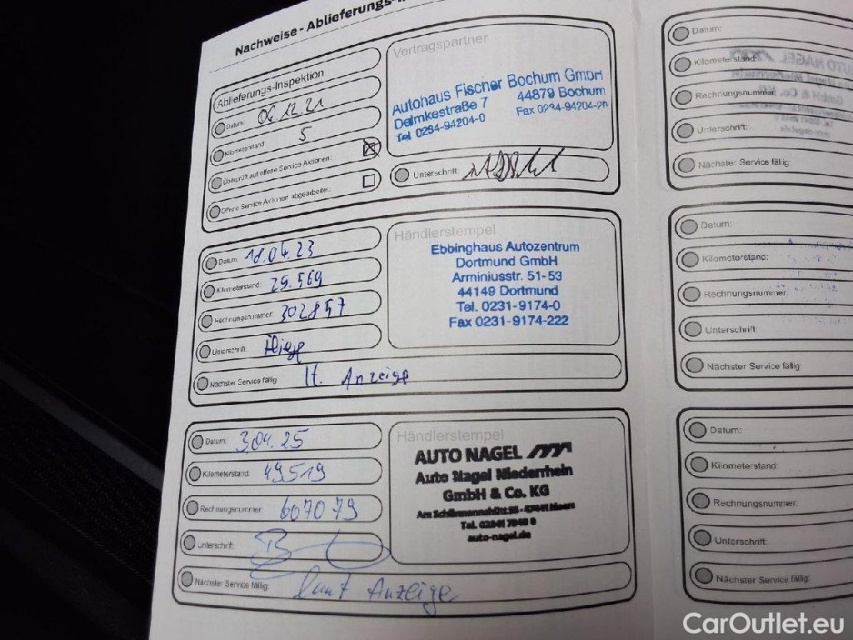 Nachweise - Ablieferungs-
Ablieferungs-Inspektion
Datum: 06.12.21
Kilometerstand: 5
Überprüft auf offene Service Aktionen:
Offene Service Aktionen abgearbeitet:
Vertragspartner
Autohaus Fischer Bochum GmbH
Delmkestraße 7 44879 Bochum
Tel. 0234-94204-0 Fax 0234-94204-20
Unterschrift:
Datum: 18.04.23
Kilometerstand: 29.569
Rechnungsnummer: 302857
Unterschrift:
Nächster Service fällig: lt. Anzeige
Händlerstempel
Ebbinghaus Autozentrum
Dortmund GmbH
Arminiusstr. 51-53
44149 Dortmund
Tel. 0231-9174-0
Fax 0231-9174-222
Datum: 3.04.25
Kilometerstand: 49519
Rechnungsnummer: 607079
Unterschrift:
Nächster Service fällig: laut Anzeige
Händlerstempel
AUTO NAGEL
Auto Nagel Niederrhein
GmbH & Co. KG
auto-nagel.de
Datum:
Kilometerstand:
Rechnungsnummer:
Unterschrift:
Nächster Service fällig:
Datum:
Kilometerstand:
Rechnungsnummer:
Unterschrift:
Nächster Service fällig:
Datum:
Kilometerstand:
Rechnungsnummer:
Unterschrift:
Nächster Service fällig:
CarOutlet.eu